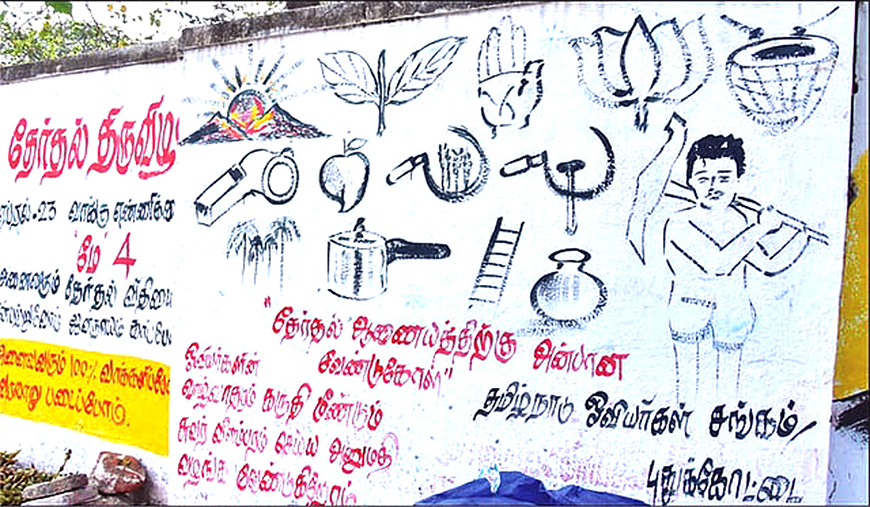 தேர்தல் திருவிழா
ஏப்ரல்-23 வாக்கு எண்ணிக்கை
"மே" 4
அனைவரும் தேர்தல் விதியை
காப்போம்
அனைவரும் 100% வாக்களிப்போம்
வரலாறு படைப்போம்.
"தேர்தல் ஆணையத்திற்கு அன்பான
வேண்டுகோள்"
ஓவியர்களின்
வாழ்வாதாரம் கருதி மீண்டும்
சுவர் விளம்பரம் செய்ய அனுமதி
வழங்க வேண்டுகிறோம்
தமிழ்நாடு ஓவியர்கள் சங்கம்,
புதுக்கோட்டை